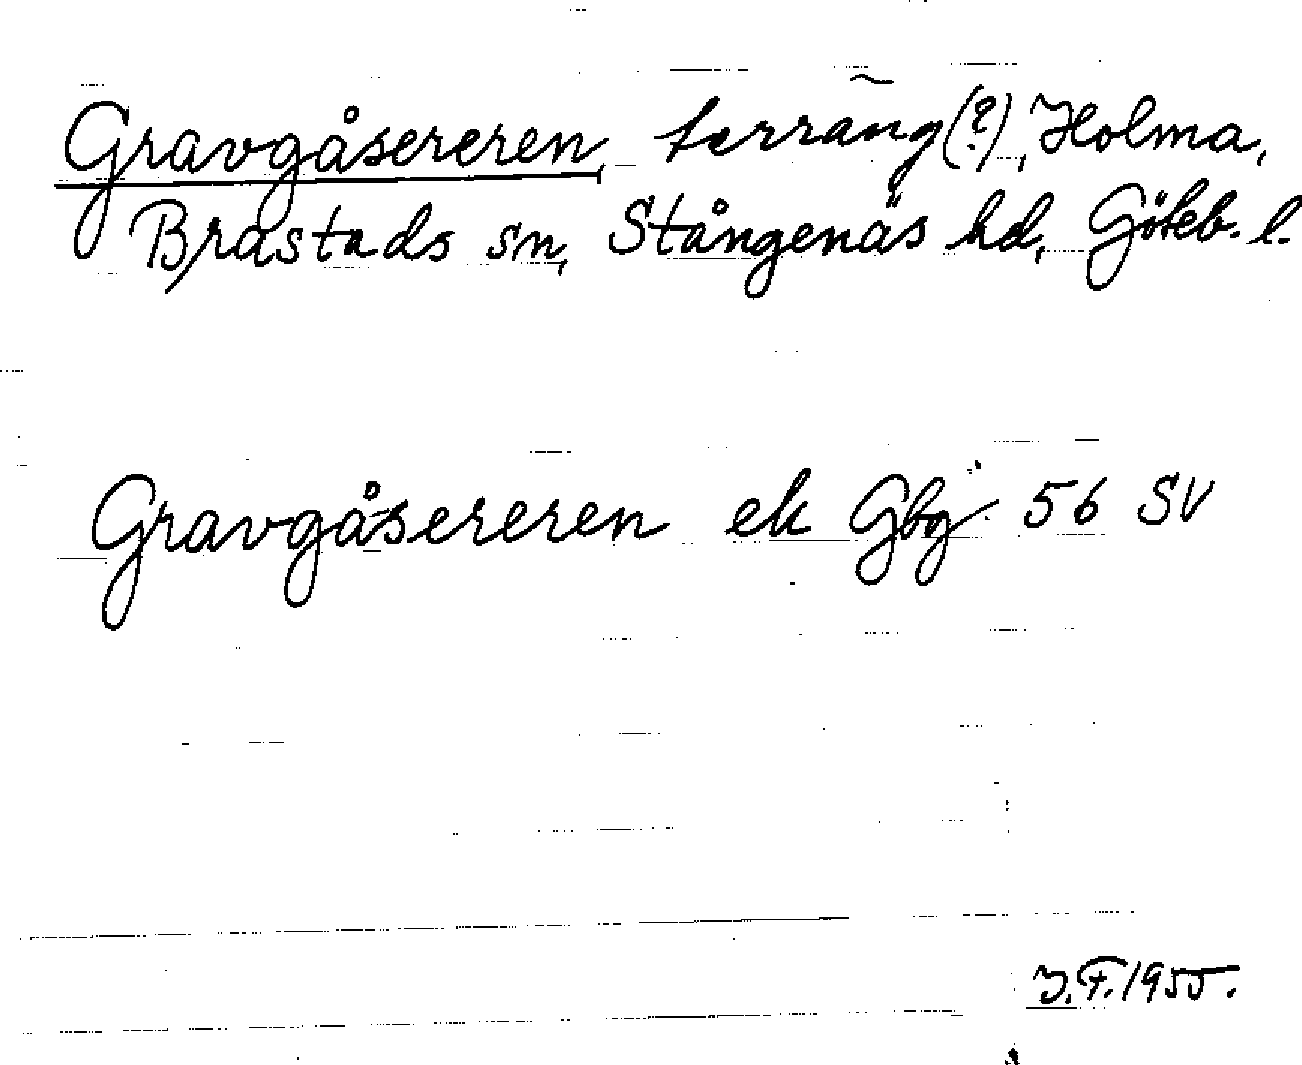 Gravgåsereren, terräng(?), Holma,
Brastads sn, Stångenäs hd, Göteb. l.
Gravgåsereren ek Gbg 56 SV
J.F. 1955.